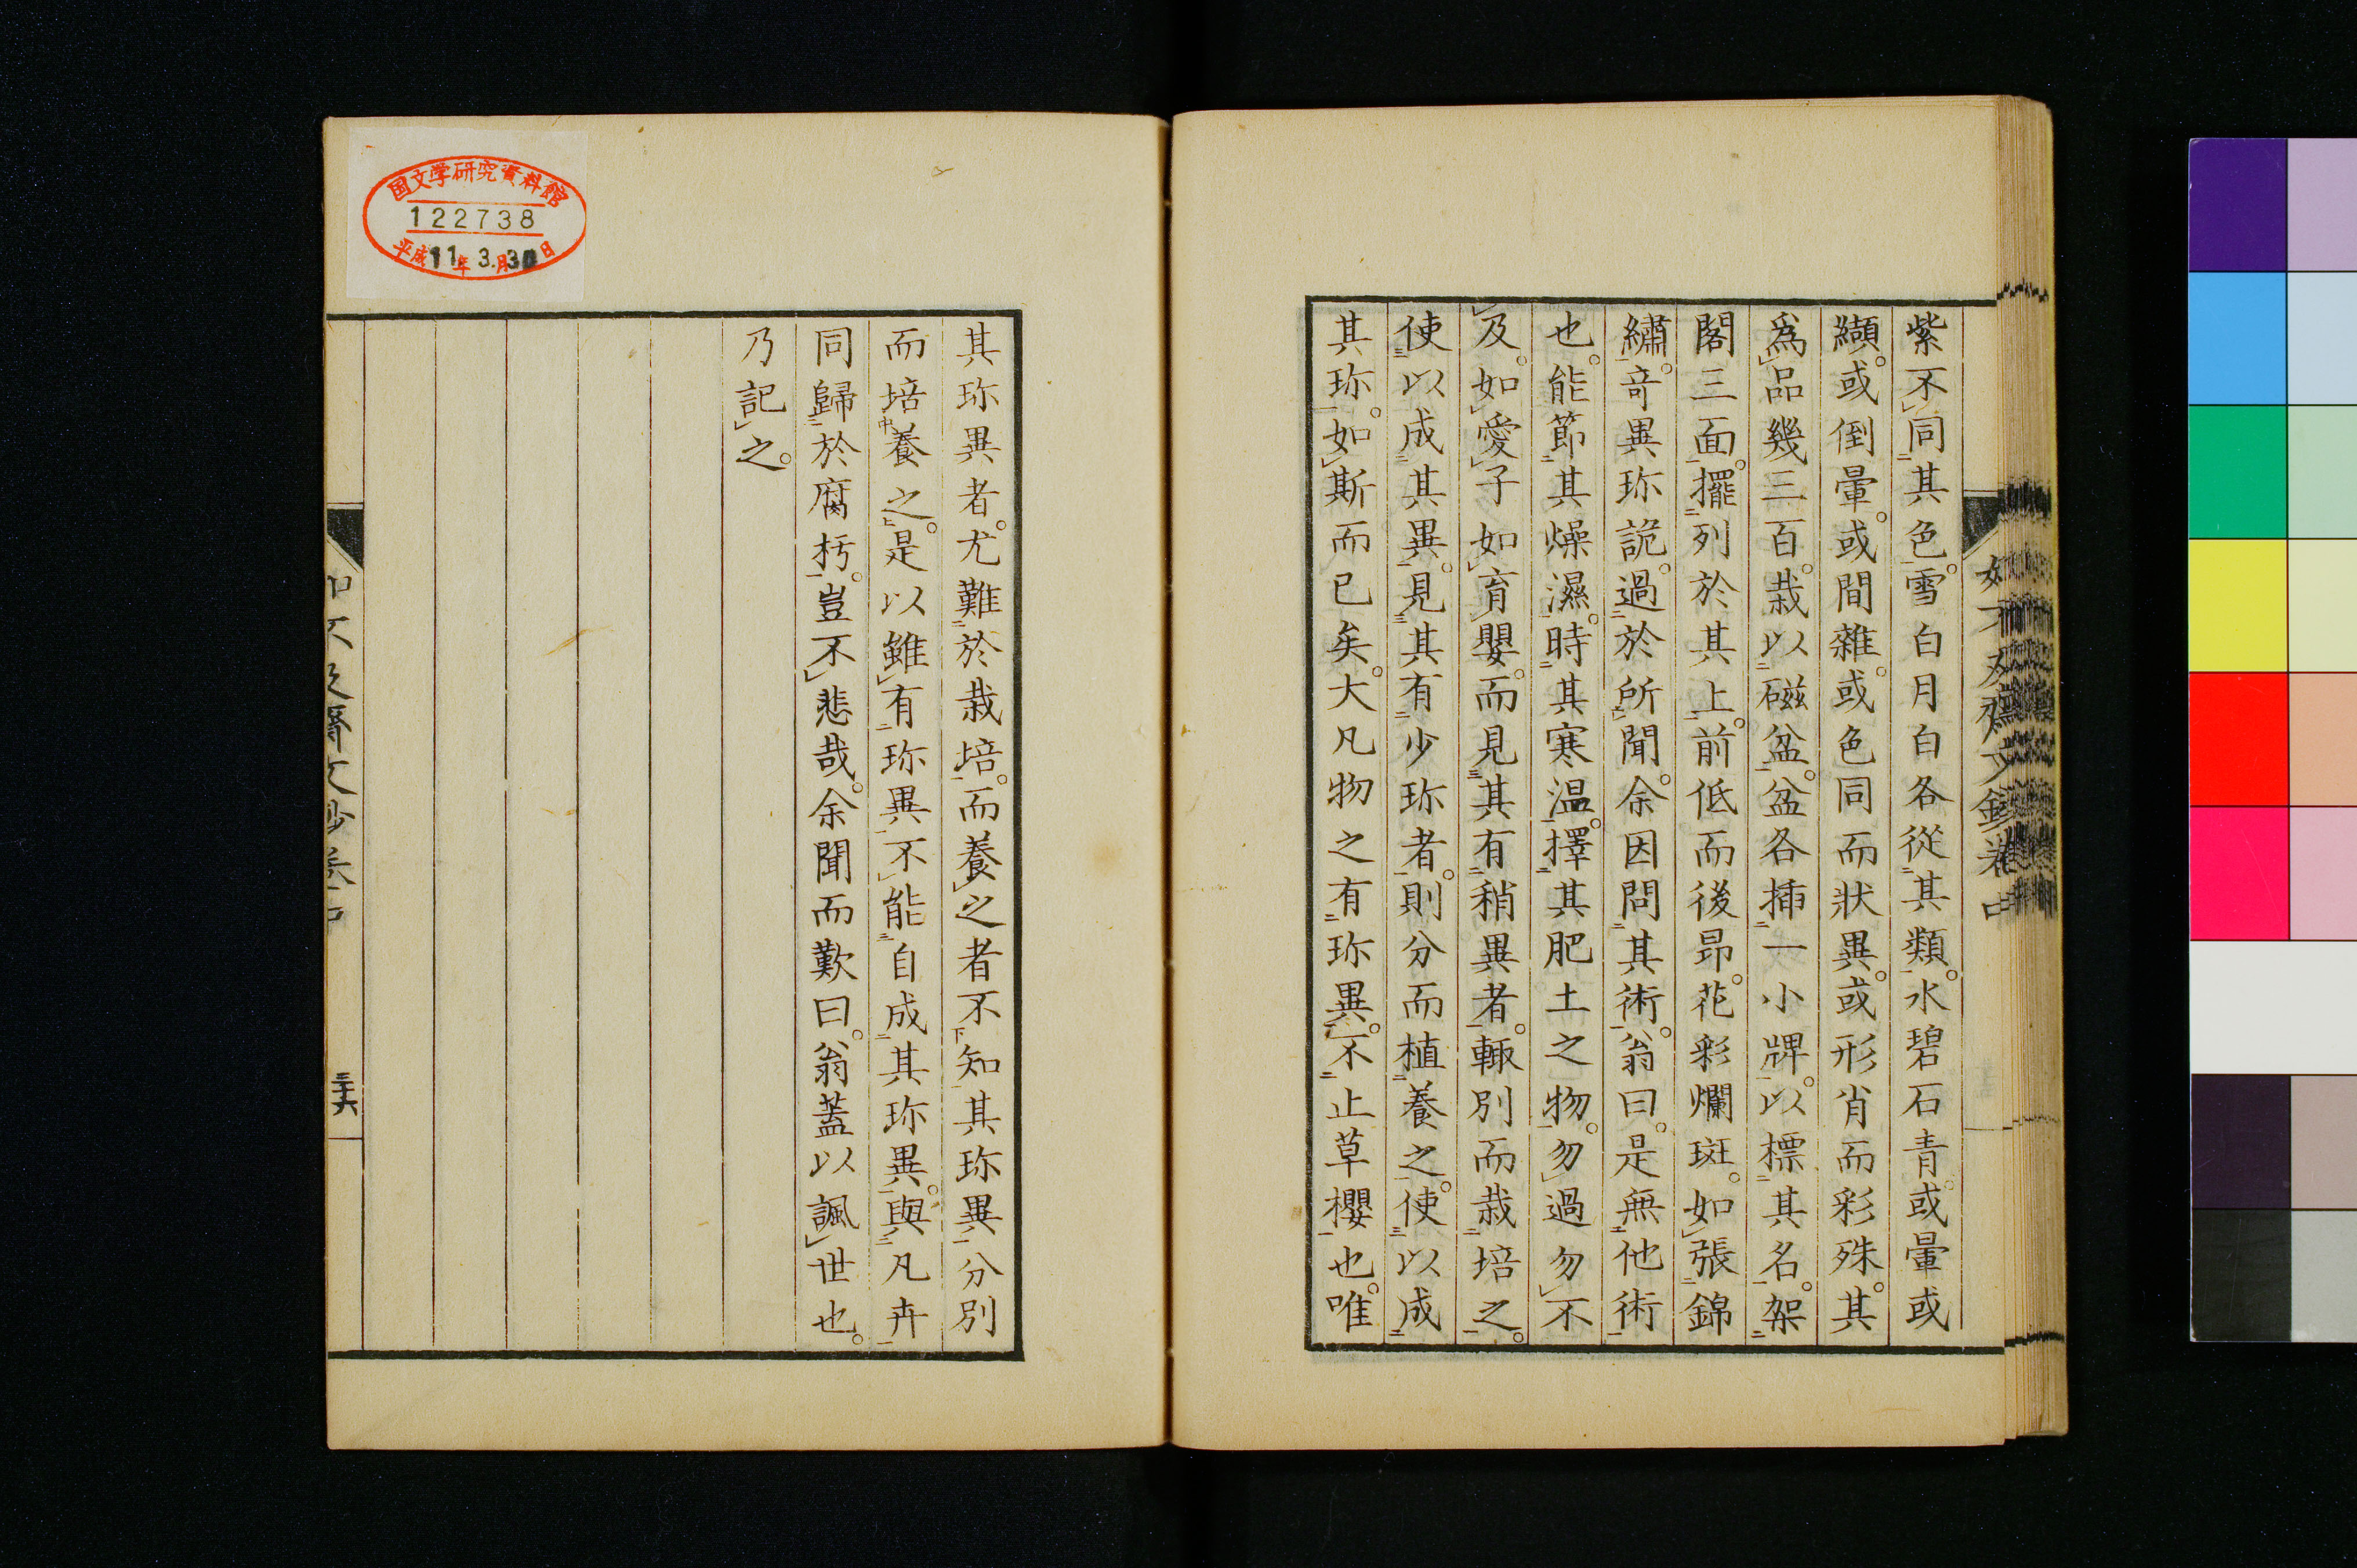 紫不同其色。雪白月白各從其類。水碧石青。或暈或
纈。或倒暈。或間雜。或色同而狀異。或形肖而彩殊。其
爲品幾三百。栽以磁盆。盆各挿一小牌。以標其名。架
閣三面。擺列於其上。前低而後昂。花彩爛斑。如張錦
繡。竒異珎詭。過於所聞。余因問其術。翁曰。是無他術
也。能節其燥濕。時其寒温。擇其肥土之物。勿過勿不
及。如愛子如育嬰。而見其有稍異者。輙別而栽培之。
使以成其異。見其有少珎者。則分而植養之。使以成
其珎。如斯而已矣。大凡物之有珎異。不止草櫻也。唯
其珎異者。尤難於栽培。而養之者不知其珎異分別
而培養之。是以雖有珎異不能自成其珎異。與凡卉
同歸於腐朽。豈不悲哉。余聞而歎曰。翁蓋以諷世也。
乃記之。
国文学研究資料館
122738
平成11年3月30日